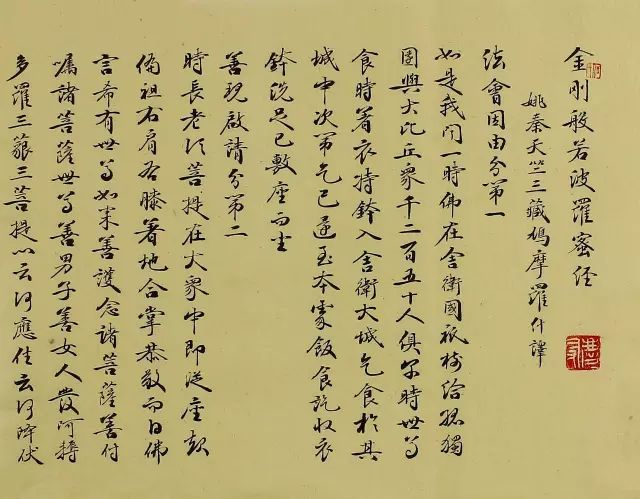 金剛般若波羅蜜經
姚秦天竺三藏鳩摩羅什譯
法會因由分第一
如是我聞一時佛在舍衛國祇樹給孤獨
園與大比丘眾千二百五十人俱爾時世尊
食時著衣持鉢入舍衛大城乞食於其
城中次第乞已還至本處飯食訖收衣
鉢洗足已敷座而坐
善現啟請分第二
時長老須菩提在大眾中即從座起
偏袒右肩右膝著地合掌恭敬而白佛
言希有世尊如來善護念諸菩薩善付
囑諸菩薩世尊善男子善女人發阿耨
多羅三藐三菩提心云何應住云何降伏